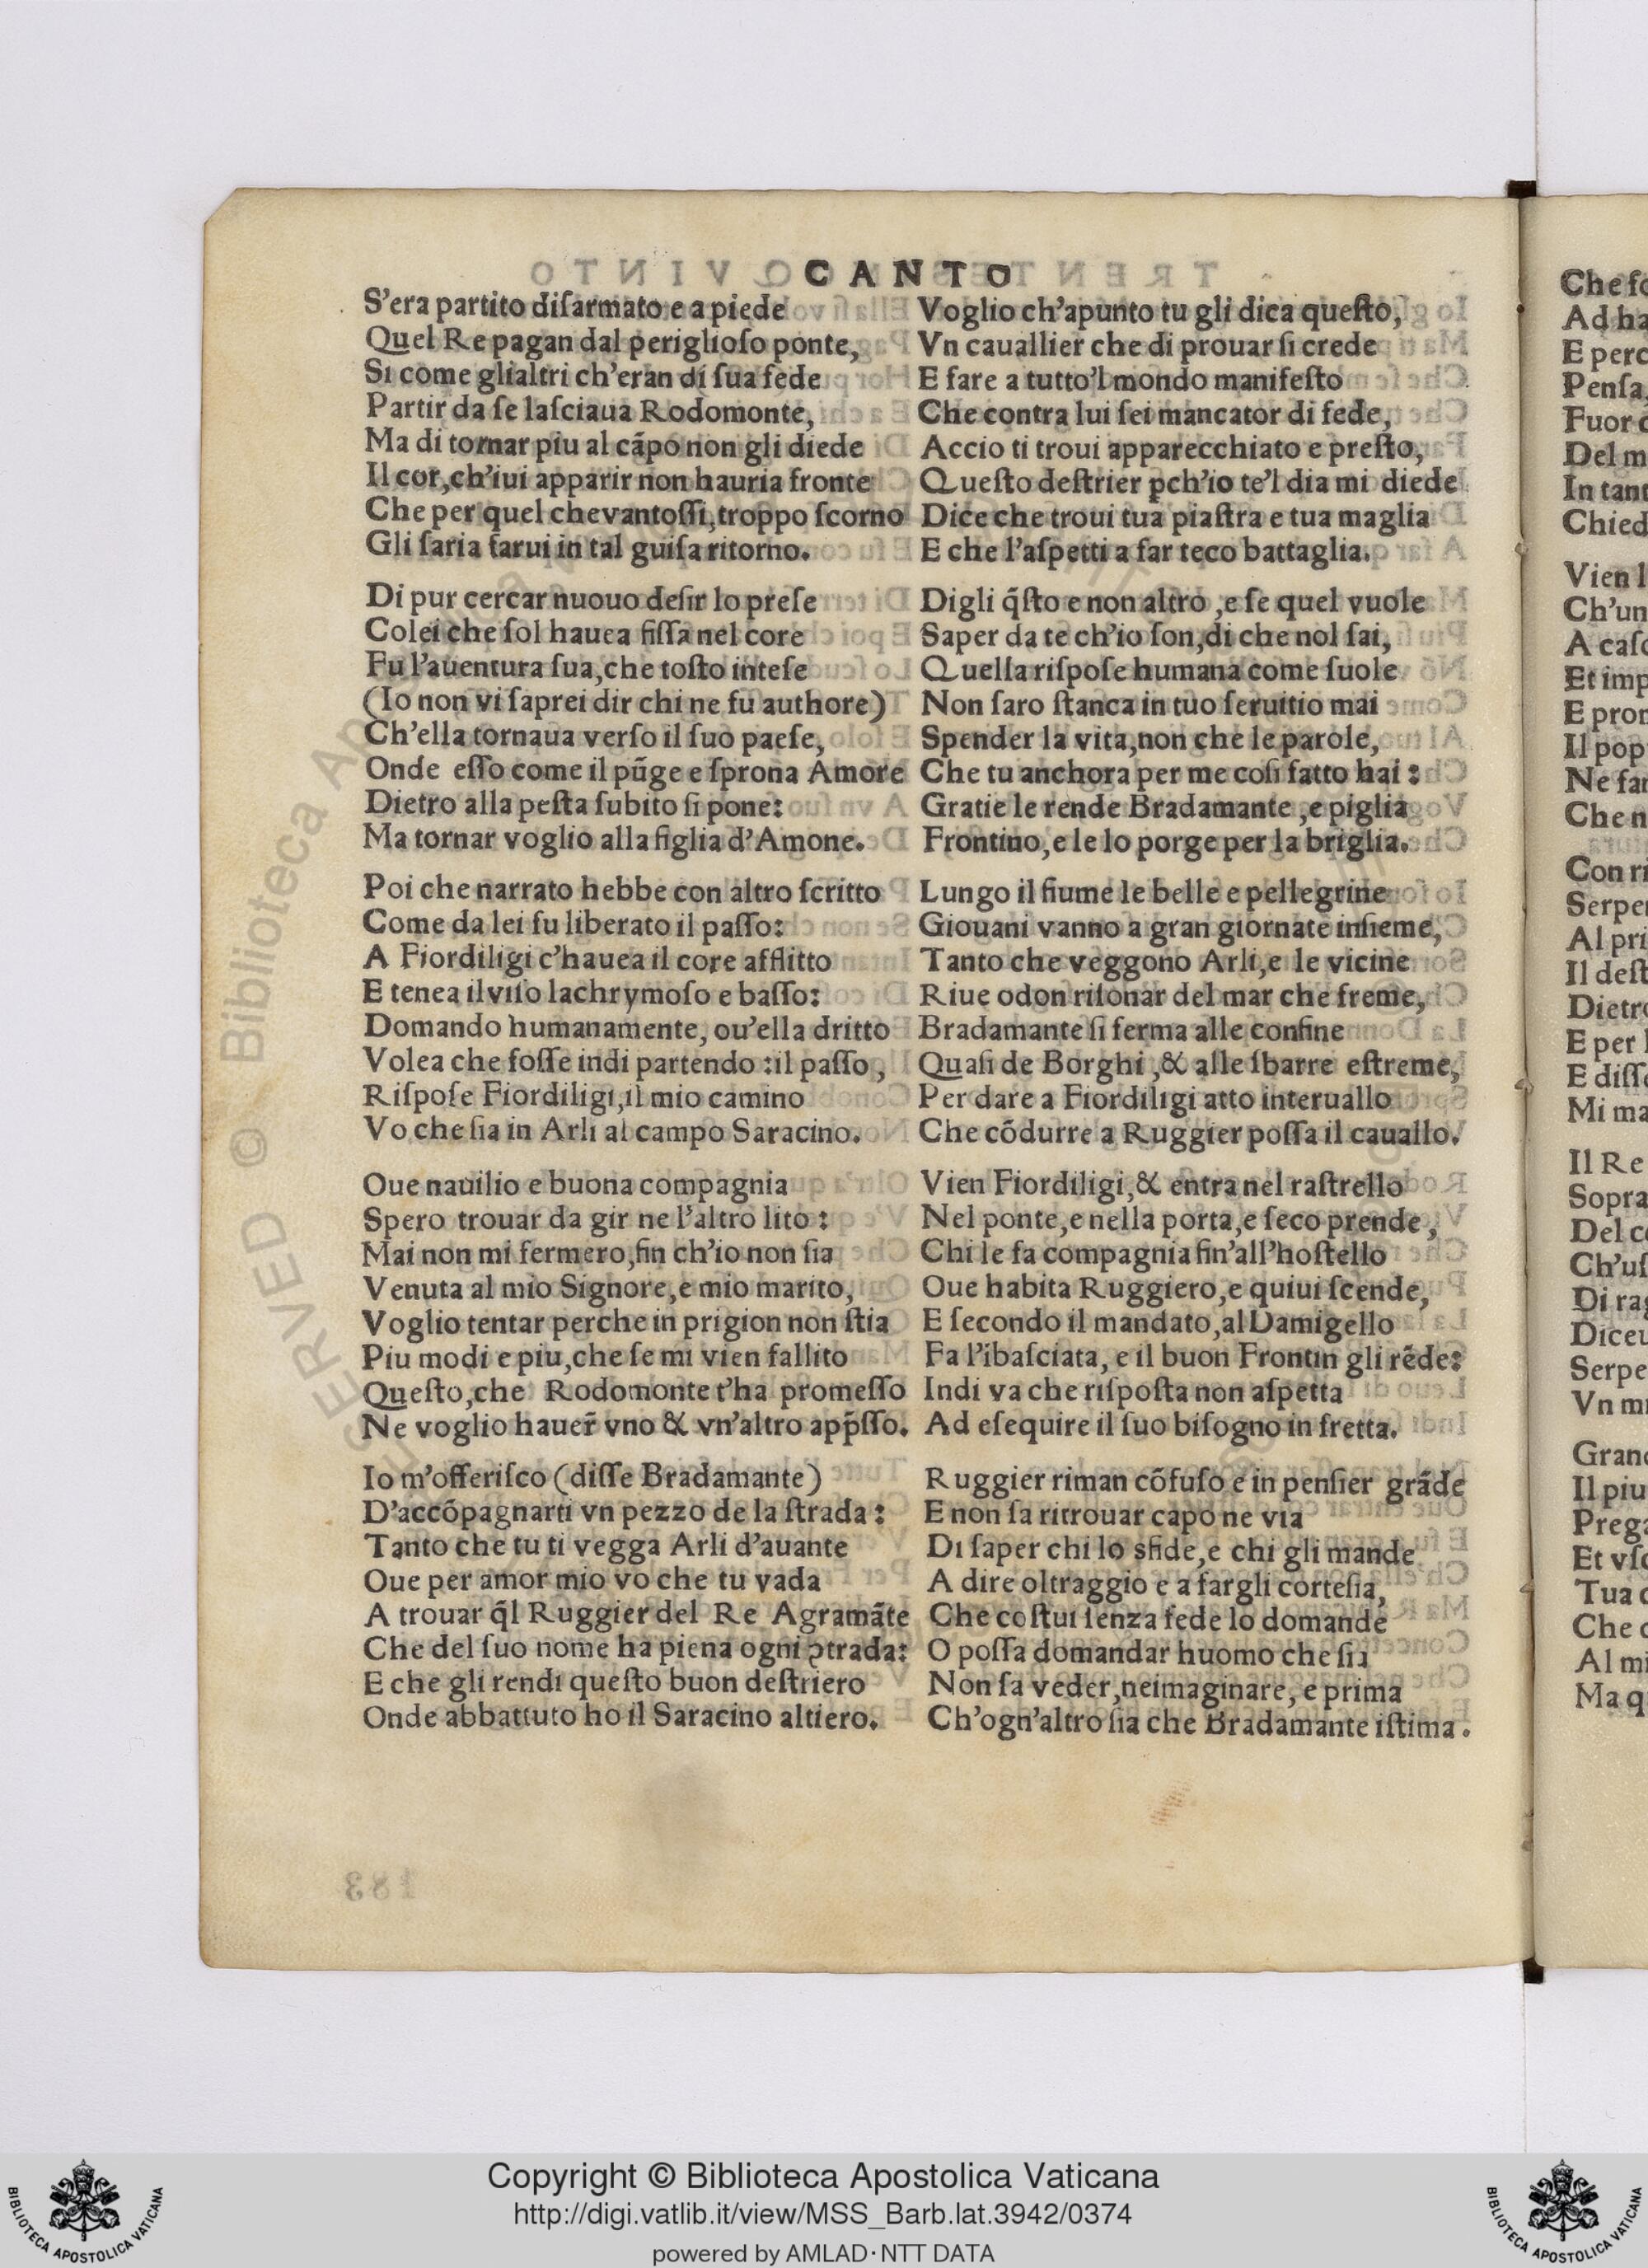 CANTO
S'era partito diſarmato e a piede
Quel Re pagan dal periglioſo ponte,
Si come glialtri ch'eran di ſua fede
Partir da ſe laſciaua Rodomonte,
Ma di tornar piu al cãpo non gli diede
Il cor,ch'iui apparir non hauria fronte
Che per quel chevantoſſi,troppo ſcorno
Gli ſaria farui in tal guiſa ritorno.
Di pur cercar nuouo deſir lo preſe
Colei che ſol hauea fiſſa nel core
Fu l'auentura ſua,che toſto inteſe
(Io non vi ſaprei dir chi ne fu authore)
Ch'ella tornaua verſo il ſuo paeſe,
Onde eſſo come il pũge e ſprona Amore
Dietro alla peſta ſubito ſi pone:
Ma tornar voglio alla figlia d'Amone.
Poi che narrato hebbe con altro ſcritto
Come da lei fu liberato il paſſo:
A Fiordiligi c'hauea il core afflitto
E tenea il viſo lachrymoſo e baſſo:
Domando humanamente, ou'ella dritto
Volea che foſſe indi partendo :il paſſo,
Riſpoſe Fiordiligi,il mio camino
Vo che ſia in Arli al campo Saracino.
Oue nauilio e buona compagnia
Spero trouar da gir ne l'altro lito :
Mai non mi fermero,fin ch'io non ſia
Venuta al mio Signore,e mio marito,
Voglio tentar perche in prigion non ſtia
Piu modi e piu,che ſe mi vien fallito
Queſto,che Rodomonte t'ha promeſſo
Ne voglio hauer̃ vno & vn'altro app̃ſſo.
Io m'offeriſco (diſſe Bradamante)
D'accõpagnarti vn pezzo de la ſtrada :
Tanto che tu ti vegga Arli d'auante
Oue per amor mio vo che tu vada
A trouar q̃l Ruggier del Re Agramãte
Che del ſuo nome ha piena ogni ꝯtrada:
E che gli rendi queſto buon deſtriero
Onde abbattuto ho il Saracino altiero.
Voglio ch'apunto tu gli dica queſto,
Vn cauallier che di prouar ſi crede
E fare a tutto'l mondo manifeſto
Che contra lui ſei mancator di fede,
Accio ti troui apparecchiato e preſto,
Queſto deſtrier ꝑch'io te'l dia mi diede
Dice che troui tua piaſtra e tua maglia
E che l'aſpetti a far teco battaglia.
Digli q̃ſto e non altro ,e ſe quel vuole
Saper da te ch'io ſon,di che nol ſai,
Quella riſpoſe humana come ſuole
Non ſaro ſtanca in tuo ſeruitio mai
Spender la vita,non che le parole,
Che tu anchora per me coſi fatto hai :
Gratie le rende Bradamante ,e piglia
Frontino,e le lo porge per la briglia.
Lungo il fiume le belle e pellegrine
Giouani vanno a gran giornate inſieme,
Tanto che veggono Arli,e le vicine
Riue odon riſonar del mar che freme,
Bradamante ſi ferma alle confine
Quaſi de Borghi ,& alle ſbarre eſtreme,
Per dare a Fiordiligi atto interuallo
Che cõdurre a Ruggier poſſa il cauallo.
Vien Fiordiligi,& entra nel raſtrello
Nel ponte,e nella porta,e ſeco prende,
Chi le fa compagnia fin'all'hoſtello
Oue habita Ruggiero,e quiui ſcende,
E ſecondo il mandato,al Damigello
Fa l'ibaſciata, e il buon Frontin gli rẽde:
Indi va che riſpoſta non aſpetta
Ad eſequire il ſuo biſogno in fretta.
Ruggier riman cõfuſo e in penſier grãde
E non ſa ritrouar capo ne via
Di ſaper chi lo sfide,e chi gli mande
A dire oltraggio e a fargli corteſia,
Che coſtui ſenza fede lo domande
O poſſa domandar huomo che ſia
Non ſa veder,neimaginare, e prima
Ch'ogn'altro ſia che Bradamante iſtima.
Ad ha
E perc
Penſa,
Del m
In tant
Chied
Vien l
Ch'un
A caſc
Et imp
E pron
Il pop
Ne far
Che n
Con ri
Serpe
Al pri
Il deſt
Dietro
E per
E diſſe
Mi ma
Il Re
Sopra
Del c
Ch'uſ
Di rag
Diceu
Serpe
Vn m
Grand
Il piu
Prega
Et vſc
Tua
Che
Al mi
Ma q
Copyright © Biblioteca Apostolica Vaticana
http://digi.vatlib.it/view/MSS_Barb.lat.3942/0374
powered by AMLAD·NTT DATA
BIBLIOTECA APOSTOLICA VATICANA
BIBLIOTECA APOSTOLICA VATICANA